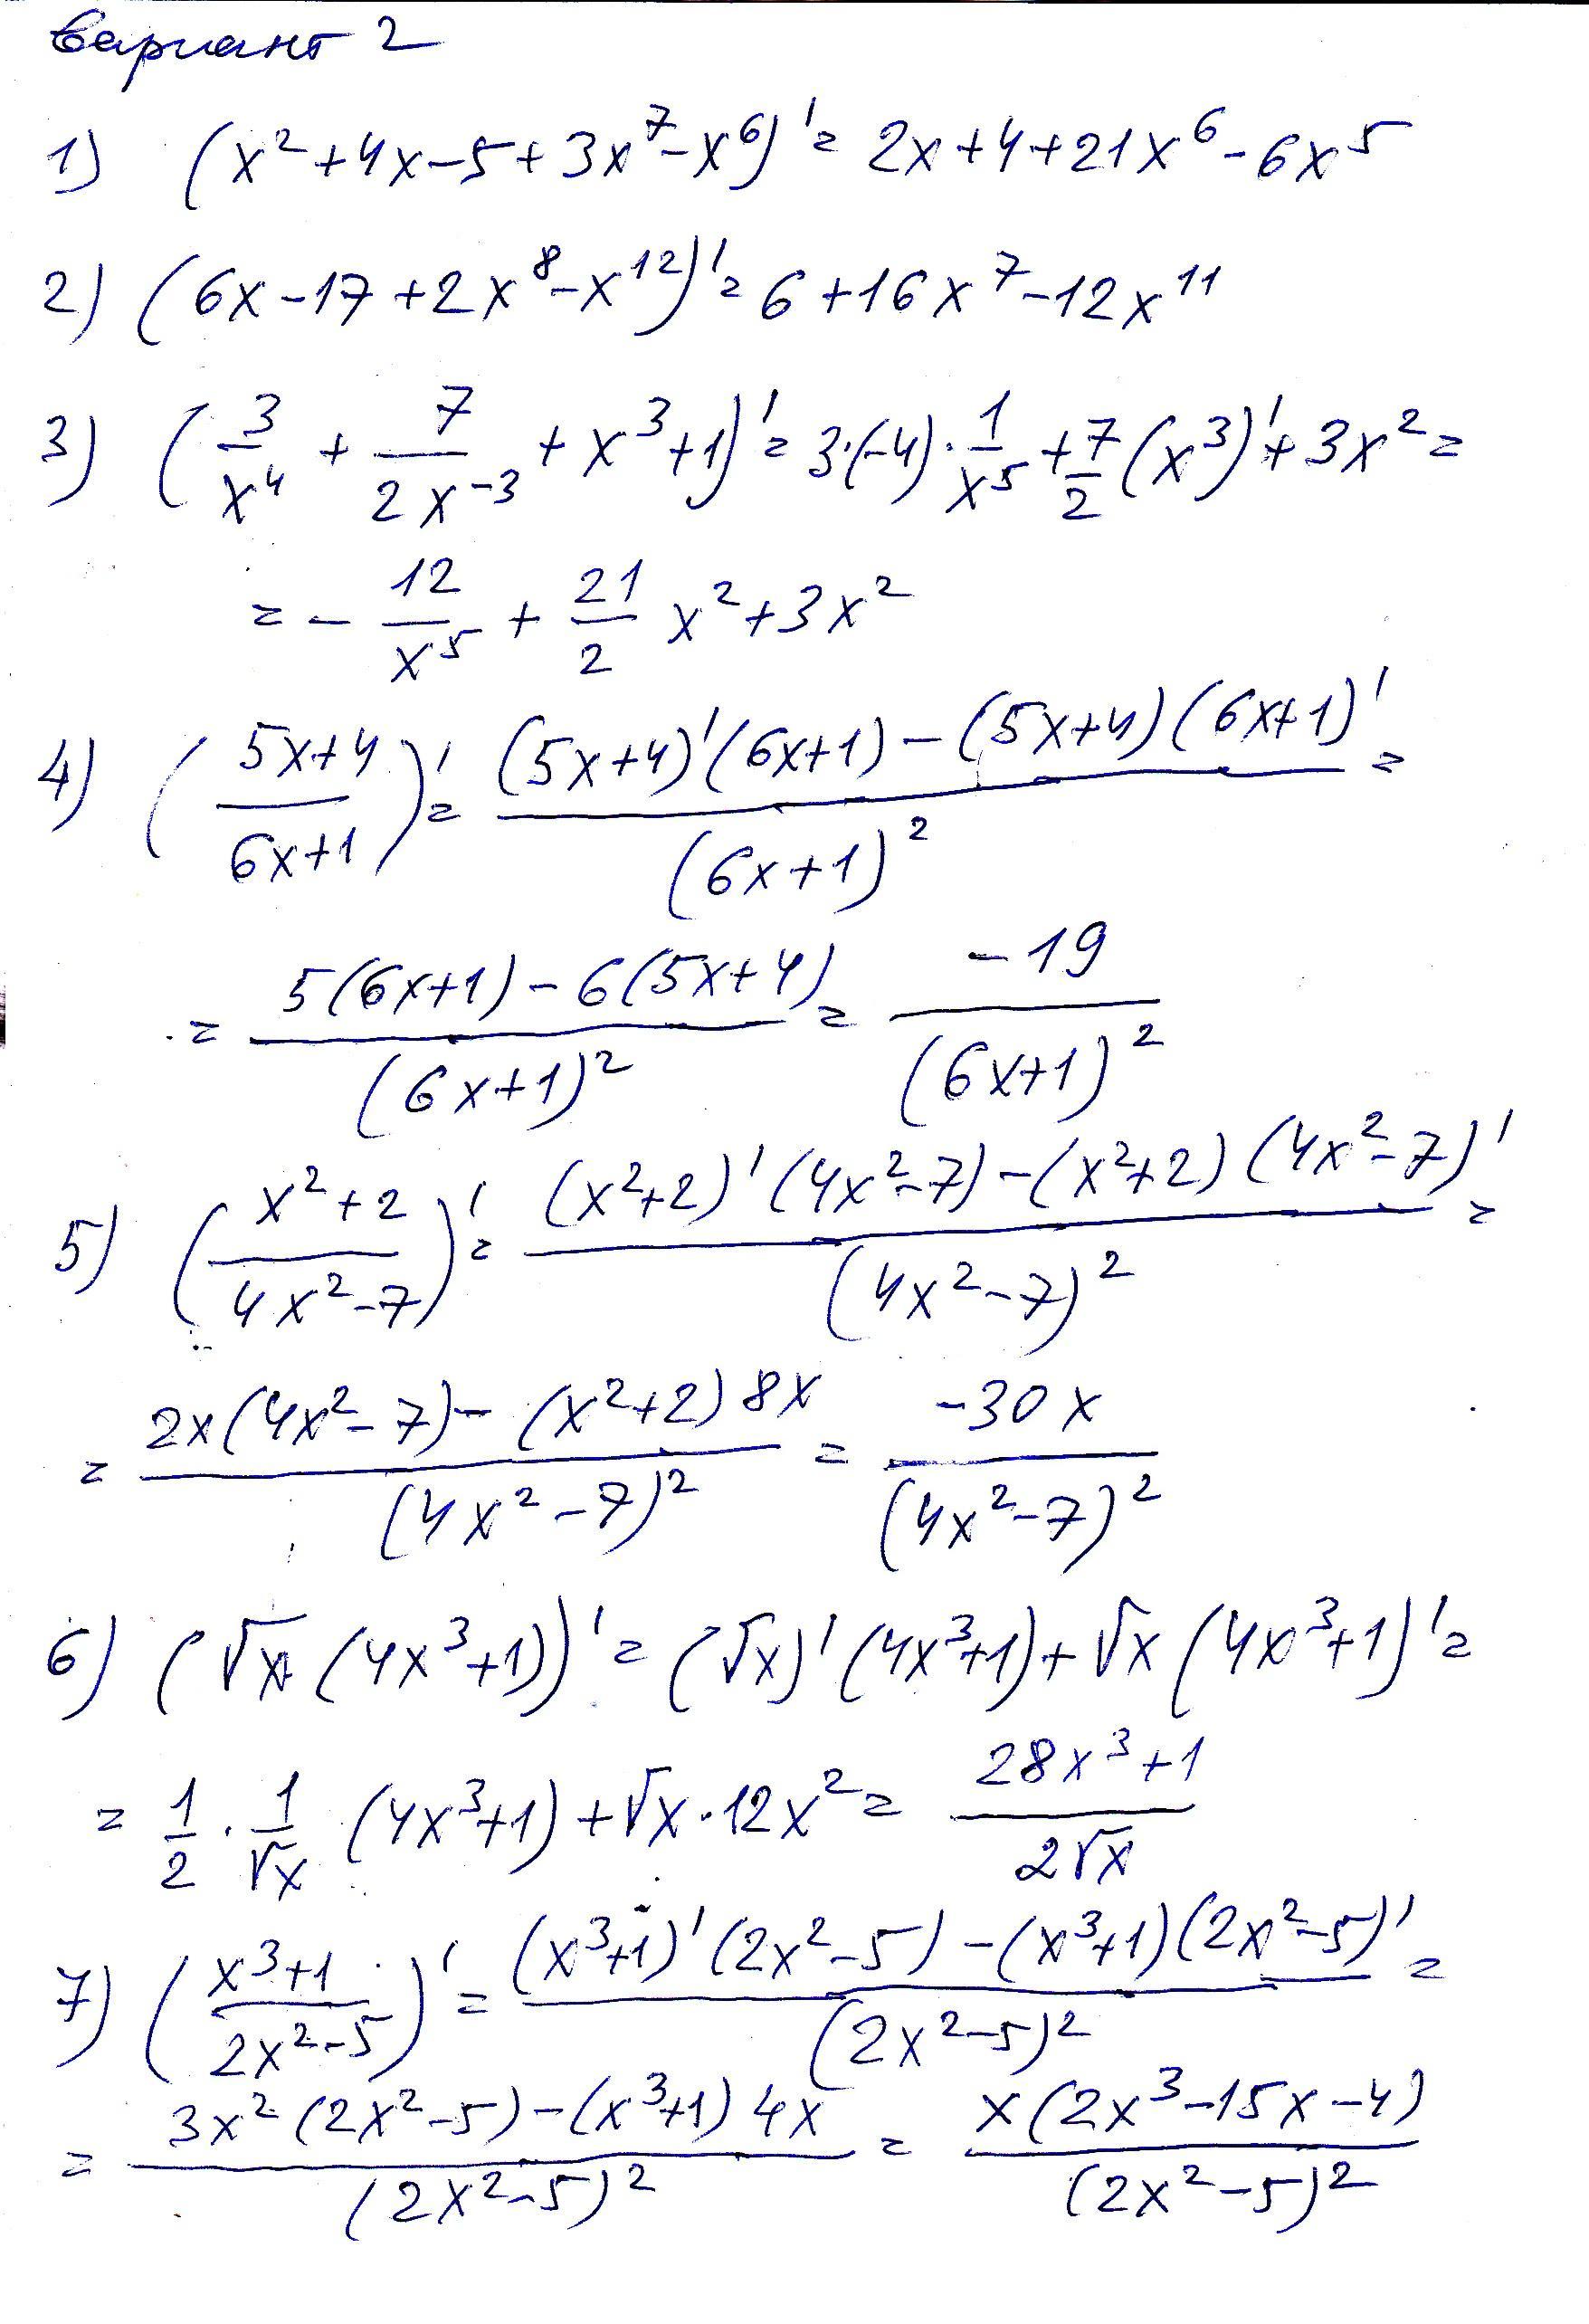 Вариант 2
1) (x² + 4x - 5 + 3x⁷ - x⁶)' = 2x + 4 + 21x⁶ - 6x⁵
2) (6x - 17 + 2x⁸ - x¹²)' = 6 + 16x⁷ - 12x¹¹
3) (3/x⁴ + 7/(2x⁻³) + x³ + 1)' = 3·(-4)·1/x⁵ + 7/2 (x³)' + 3x² =
= - 12/x⁵ + 21/2 x² + 3x²
4) ((5x+4)/(6x+1))' = ((5x+4)'(6x+1) - (5x+4)(6x+1)')/(6x+1)² =
= (5(6x+1) - 6(5x+4))/(6x+1)² = -19/(6x+1)²
5) ((x²+2)/(4x²-7))' = ((x²+2)'(4x²-7) - (x²+2)(4x²-7)')/(4x²-7)² =
= (2x(4x²-7) - (x²+2)8x)/(4x²-7)² = -30x/(4x²-7)²
6) (√x (4x³+1))' = (√x)'(4x³+1) + √x (4x³+1)' =
= 1/2 · 1/√x (4x³+1) + √x · 12x² = (28x³+1)/(2√x)
7) ((x³+1)/(2x²-5))' = ((x³+1)'(2x²-5) - (x³+1)(2x²-5)')/(2x²-5)² =
= (3x²(2x²-5) - (x³+1)4x)/(2x²-5)² = x(2x³-15x-4)/(2x²-5)²